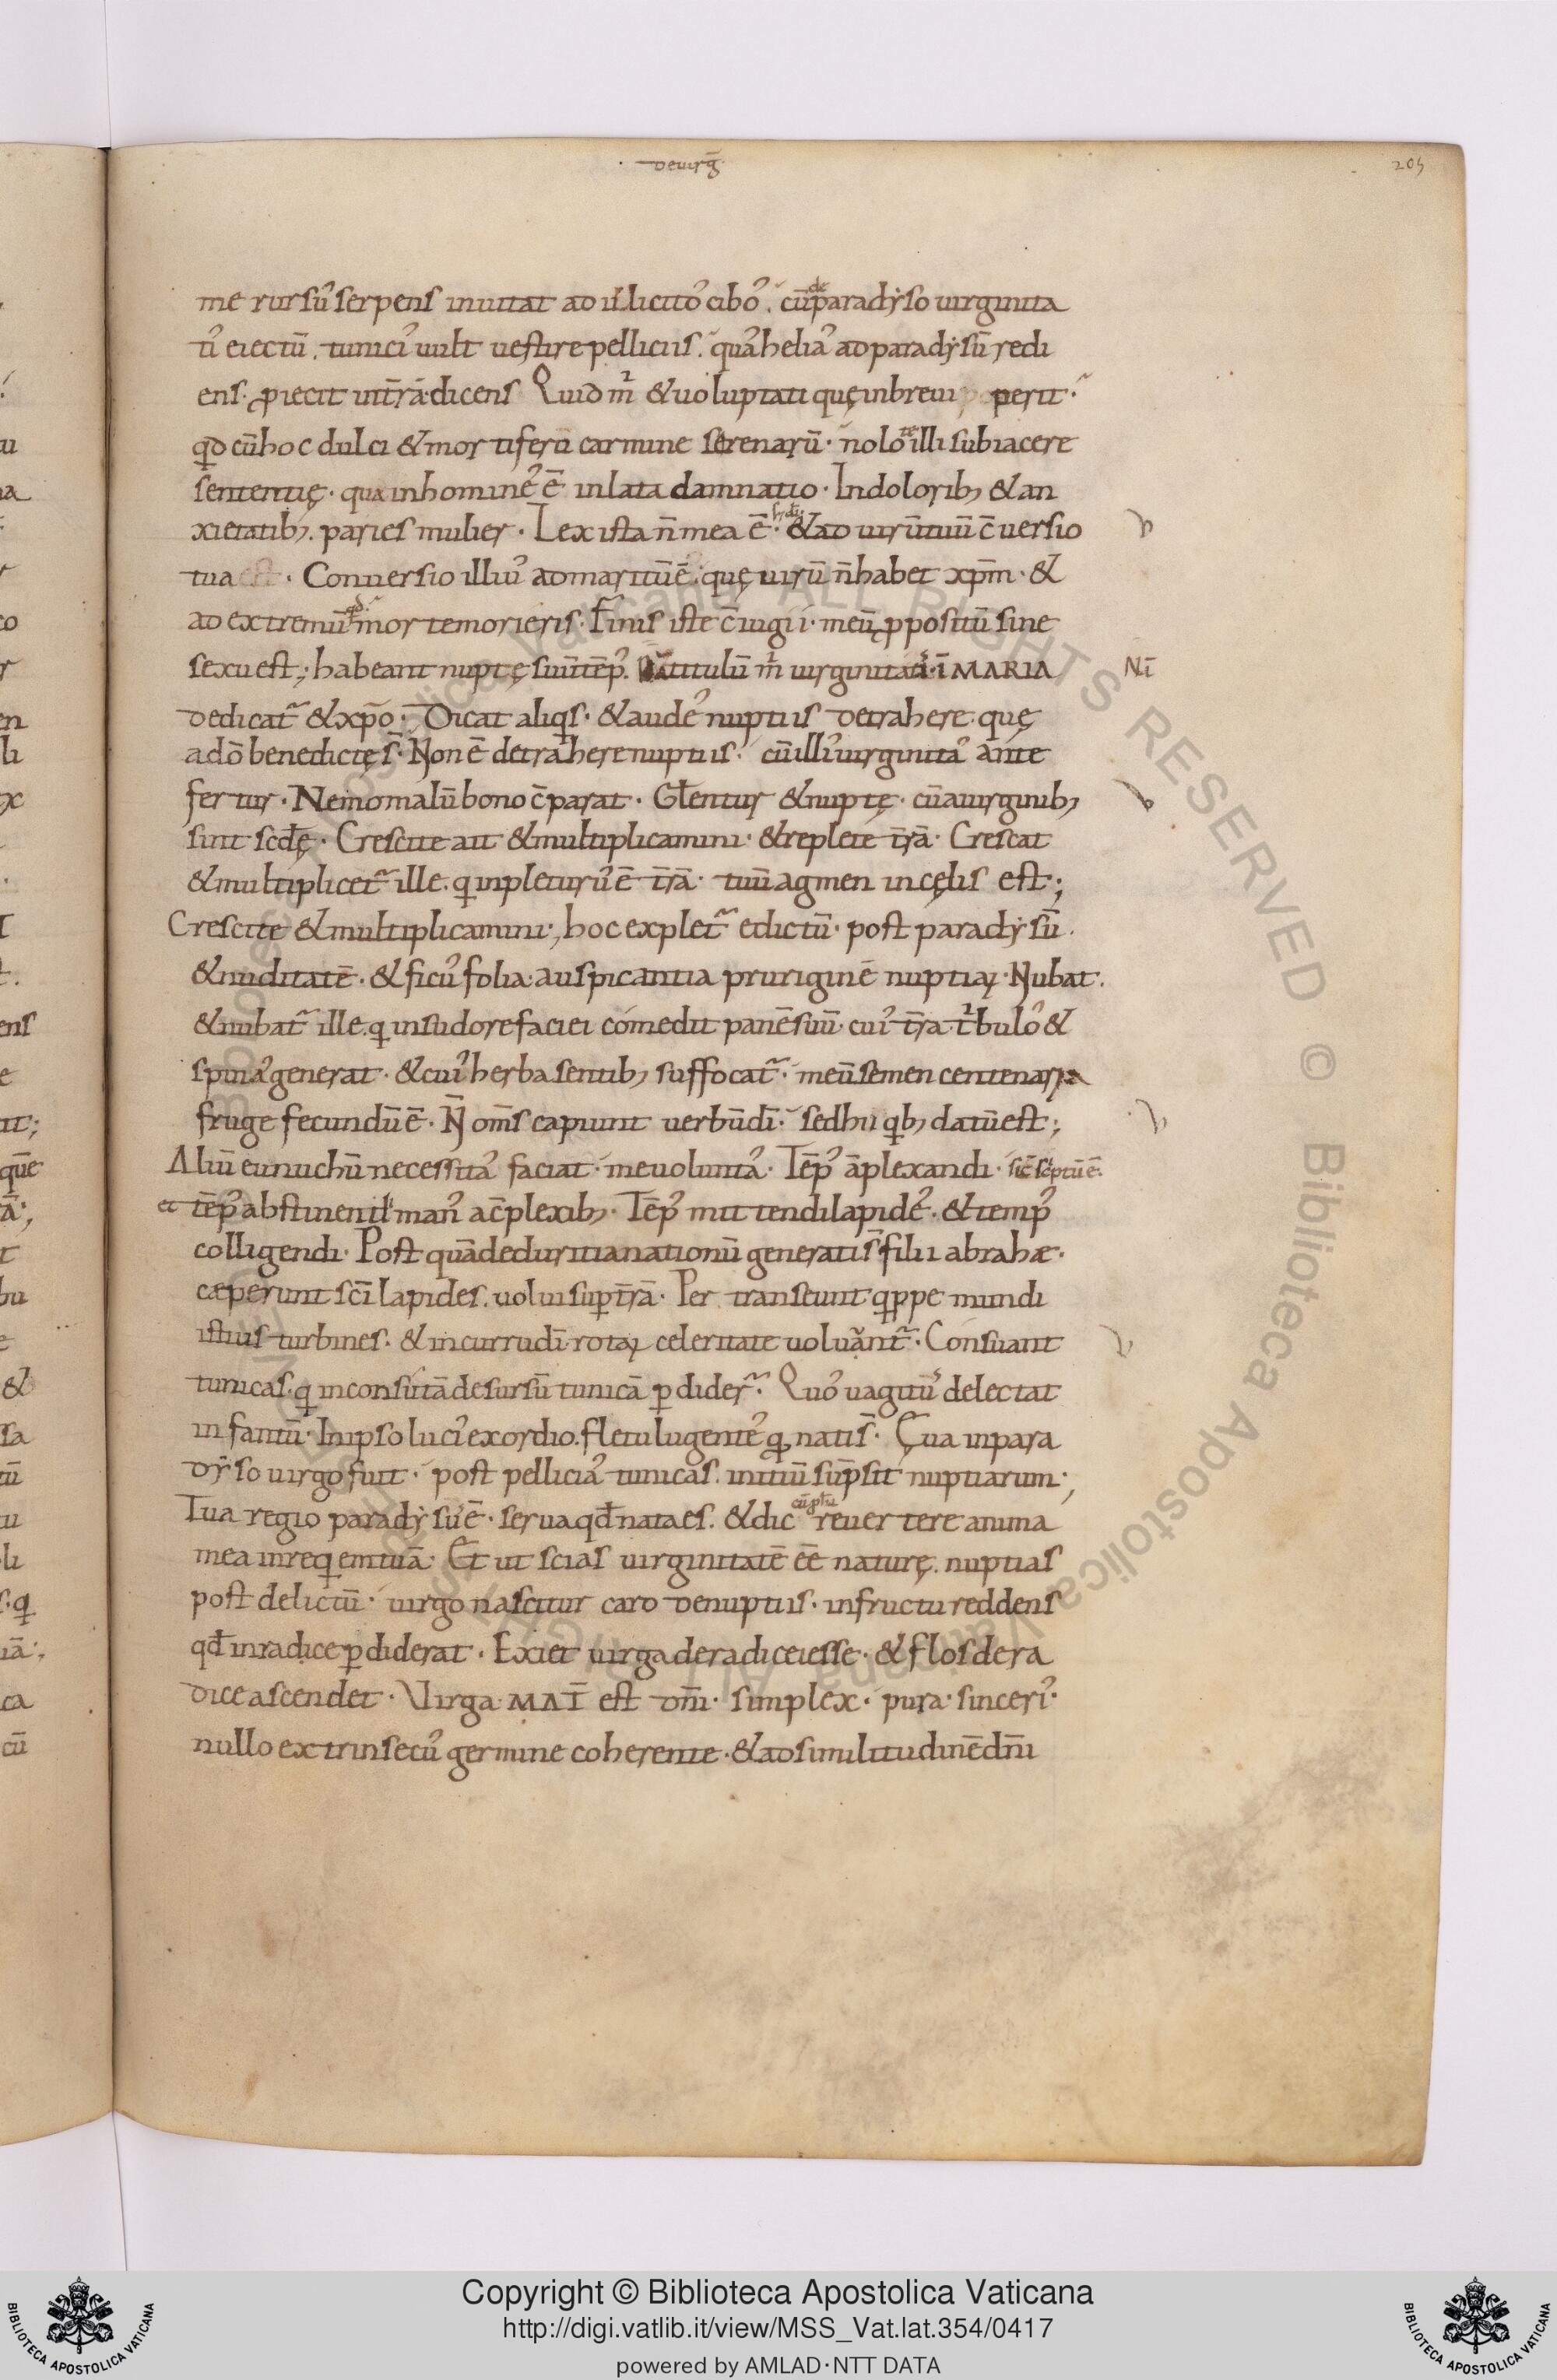 · de uirḡ
205
me rursu᷒ serpens inuitat ad illicito᷒ cibo᷒. cū de paradẏso uirginita
ti᷒ eiectū. tunici᷒ uult uestire pelliciis. qua᷒ helia᷒ ad paradẏsū redi
ens. ꝓiecit in t̄rā. dicens Quid m̅ & uoluptati quę in breui perit·
qd cū hoc dulci & mortifero carmine serenarū· nolo te illi subiacere
sententię· qua in homine᷒ ē inlata damnatio· In dolorib; & an
xietatib;. paries mulier· Lex ista n̄ mea ē· & ad uirū tuū c̄uersio
tua est· Conuersio illiu᷒ ad maritū ē· quę uirū n̄ habet xp̄m· &
ad extremū morte morieris· Finis iste c̄iugii· meū ꝓpositū sine
sexu est; habeant nuptę suū tēp᷒. titulū m̅ uirginitati᷒· ī MARIA
dedicat᷑ & xp̄o· Dicat aliqi̇s· & aude᷒ nuptiis detrahere· quę
a dō benedictę s̄· Non ē detrahere nuptiis· cū illi᷒ uirginita᷒ ante
fertur· Nemo malū bono c̄parat· Gl̄entur & nuptę· cū a uirginib;
sint scd̄ę· Crescite ait & multiplicamini· & replete t̄rā· Crescat
& multiplicet᷑ ille. qi inpleturu᷒ ē t̄rā· tuū agmen in cęlis est;
Crescite & multiplicamini; hoc explet᷑ edictū· post paradẏsū.
& nuditatē· & ficu᷒ folia· auspicantia pruriginē nuptiaꝝ· Nubat.
& nubat᷑ ille. qi in sudore faciei comedit panē suū· cui᷒ t̄ra t̊bulo᷒ &
spina᷒ generat· & cui᷒ herba sentib; suffocat᷑· meū semen centenaria
fruge fecundū ē· N̄ om̄s capiunt uerbū dī· sed hii qib; datū est;
Aliū eunuchū necessita᷒ faciat· me uolunta᷒· Tēp᷒ āplexandi· sic̄ sc̊ptū ē·
et tēp᷒ abstinendi man᷒ a c̄plexib;· Tēp᷒ mittendi lapide᷒· & temp᷒
colligendi· Post quā de duritia nationū generati s̄ filii abrahæ·
cæperunt sc̄i lapides. uolui sup t̄rā· Per transeunt qippe mundi
istius turbines. & in curru dī rotaꝝ celeritate uoluānt᷑· Consuant
tunicas. qi inconsutā desursū tunicā ꝑdider᷑· Quo᷒ uagitu᷒ delectat
infantū· In ipso luci᷒ exordio. fletu lugente᷒ qd nati s̄· Ęua in para
dẏso uirgo fuit· post pellicia᷒ tunicas. initiū sūpsit nuptiarum;
Tua regio paradẏsu᷒ ē· serua qd̄ nata es. & dic reuertere anima
mea in reqiem tuā· Et ut scias uirginitatē eē naturę. nuptias
post delictū· uirgo nascitur caro de nuptiis· in fructu reddens
qd̄ in radice ꝑdiderat· Exiet uirga de radice iesse· & flos de ra
dice ascendet· Virga· MAT̄ est dn̄i· simplex· pura· sinceri᷒·
nullo extrinsecu᷒ germine coherente· & ad similitudinē dn̄i
Copyright © Biblioteca Apostolica Vaticana
http://digi.vatlib.it/view/MSS_Vat.lat.354/0417
powered by AMLAD·NTT DATA
BIBLIOTECA APOSTOLICA VATICANA
BIBLIOTECA APOSTOLICA VATICANA